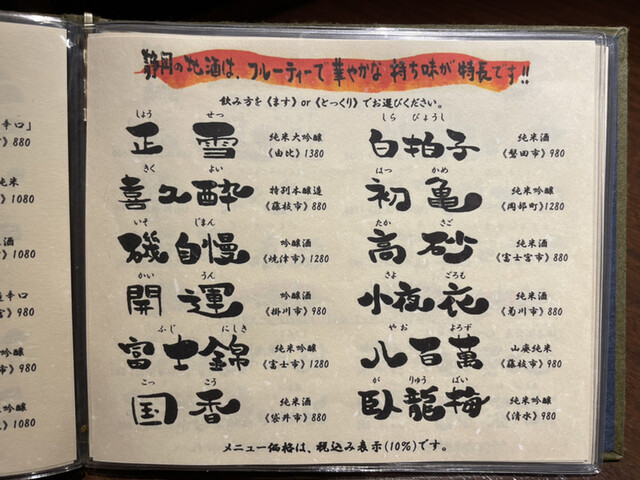 静岡の地酒は、フルーティーで華やかな持ち味が特長です!!
飲み方を《ます》or《とっくり》でお選びください。
しょう せつ
正雪
純米大吟醸
《由比》1380
きく よい
喜久酔
特別本醸造
《藤枝市》880
いそ じまん
磯自慢
吟醸酒
《焼津市》1280
かい うん
開運
吟醸酒
《掛川市》980
ふじ にしき
富士錦
純米吟醸
《富士市》1280
こっ こう
国香
純米酒
《袋井市》880
しら びょうし
白拍子
純米酒
《磐田市》980
はつ かめ
初亀
純米吟醸
《岡部町》1280
たか さご
高砂
純米酒
《富士宮市》880
さよ ごろも
小夜衣
純米酒
《菊川市》880
やお よろず
八百萬
山廃純米
《藤枝市》980
が りゅう ばい
臥龍梅
純米吟醸
《清水》980
メニュー価格は、税込み表示(10%)です。
辛口」
880
純米
1080
1080
辛口
980
吟醸
980
吟醸
1080